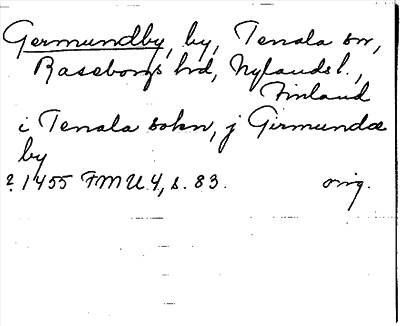 Germundby, by, Tenala sn,
Raseborgs hd, Nylands l.,
Finland
i Tenala sokn, j Girmundæ
by
2 1455 FMU 4, s. 83. orig.